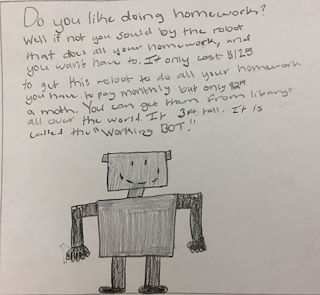 Do you like doing homework?
Well if not you sould by the robot
that does all your homework, and
you want have to. It only cost $125
to get this robot to do all your homework
you have to pay monthly but only
a moth. You can get them from
all over the world. It 3ft tall. It is
called the "Working BOT!"